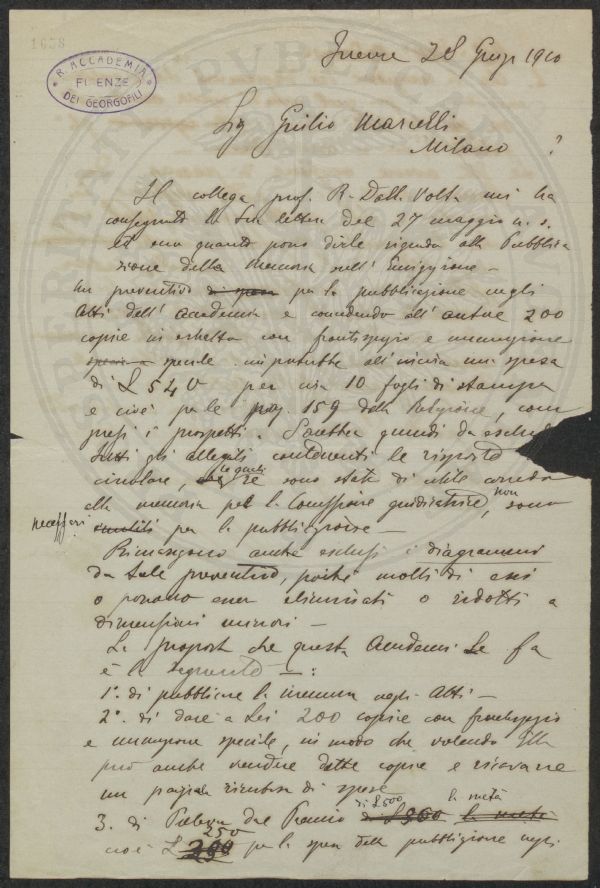 1678
R. ACCADEMIA
FIRENZE
DEI GEORGOFILI
Firenze 28 Giug 1910
Sig Giulio Marcelli
Milano ?
Il collega prof. R. Dalla Volta mi ha
consegnato la Sua lettera del 27 maggio u. s.
ed ecco quanto posso dirle riguardo alla Pubblica
zione della Memoria sull' Emigrazione -
Un preventivo di spesa per la pubblicazione negli
Atti dell' Accademia e concedendo all' autore 200
copie in estratto con frontespizio e numerazione
speciale importerebbe all' incirca una spesa
di £ 540 per circa 10 fogli di stampa
e cioè per le pag. 159 della Relazione, com
presi i prospetti. Sarebbero quindi da
tutti gli allegati contenenti le risposte
circolare, le quali se sono state di utile corredo
alla memoria per la Comissione giudicatrice, non sono
necessari inutili per la pubblicazione -
Rimangono anche esclusi i diagrammi
da tale preventivo, poiché molti di essi
o possono esser eliminati o ridotti a
dimensioni minori -
La proposta che questa Accademia Le fa
è la seguente - :
1º. di pubblicare la memoria negli Atti -
2º. di dare a Lei 200 copie con frontespizio
e numerazione speciale, in modo che volendo Ella
può anche vendere dette copie e ricavarne
un parziale rimborso di spese
3. di Premio di £ 500 la metà
cioè £ 250 per la spesa della pubblicazione negli